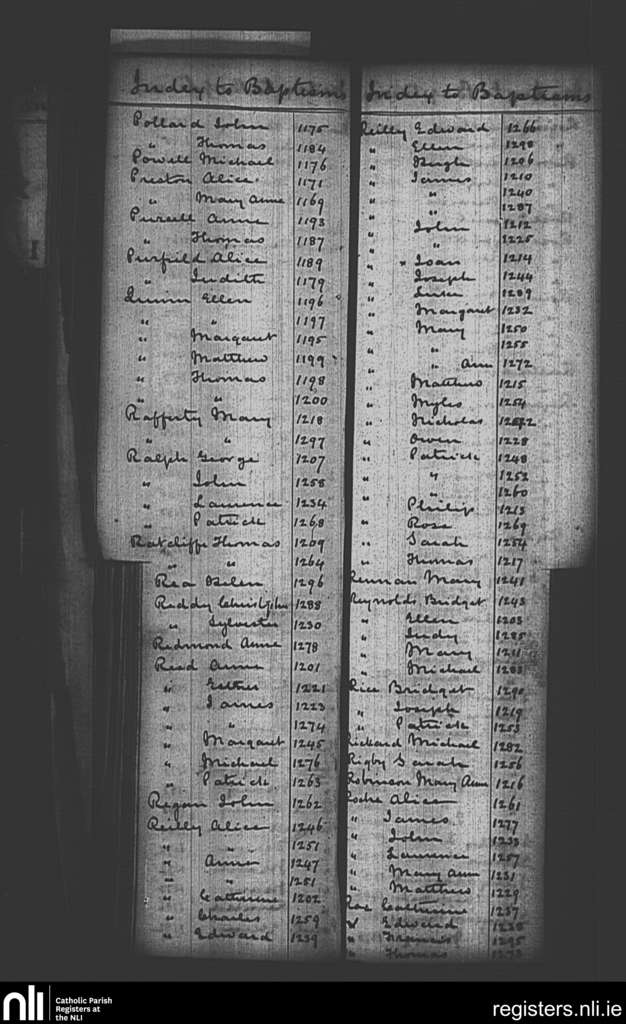 Index to Baptisms
Pollard John 1175
" Thomas 1184
Powell Michael 1176
Preston Alice 1171
" Mary Anne 1169
Purcell Anne 1193
" Thomas 1187
Purfield Alice 1189
" Judith 1179
Quinn Ellen 1196
" " 1197
" Margaret 1195
" Matthew 1199
" Thomas 1198
" " 1200
Rafferty Mary 1218
" " 1297
Ralph George 1207
" John 1258
" Laurence 1234
" Patrick 1268
Ratcliffe Thomas 1209
" " 1264
Rea 1296
Reddy Christopher 1288
" Sylvester 1230
Redmond Anne 1278
Reid Anne 1201
" Esther 1221
" James 1223
" " 1274
" Margaret 1245
" Michael 1276
" Patrick 1263
Regan John 1262
Reilly Alice 1246
" " 1251
" Anne 1247
" " 1251
" Catherine 1202
" Charles 1259
" Edward 1239
Index to Baptisms
Reilly Edward 1266
" Ellen 1298
" Hugh 1206
" James 1210
" " 1240
" " 1287
" John 1212
" " 1225
" " Joan 1214
" Joseph 1244
" 1289
" Margaret 1232
" Mary 1250
" " 1255
" " Ann 1272
" Matthew 1215
" Myles 1254
" Nicholas
" Owen 1228
" Patrick 1248
" " 1252
" " 1260
" Philip 1213
" Rose 1269
" Sarah 1254
" Thomas 1217
Rennan Mary 1241
Reynolds Bridget 1243
" Ellen 1203
" Judy 1285
" Mary 1211
" Michael
Rice Bridget 1290
" Joseph 1219
" Patrick 1253
Rickard Michael 1282
Rigby Sarah 1256
Robinson Mary Ann 1216
Roche Alice 1261
" James 1277
" John 1233
" Laurence 1257
" Mary Ann 1231
" Matthew 1229
Roe Catherine 1237
" Edward
" Francis 1295
" Thomas
nli
Catholic Parish
Registers at
the NLI
registers.nli.ie